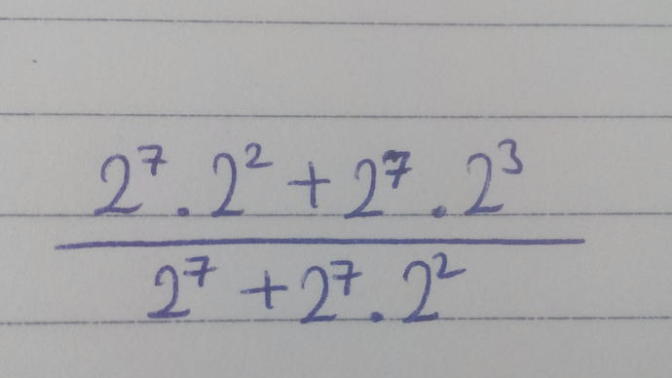 2⁷ . 2² + 2⁷ . 2³
2⁷ + 2⁷ . 2²